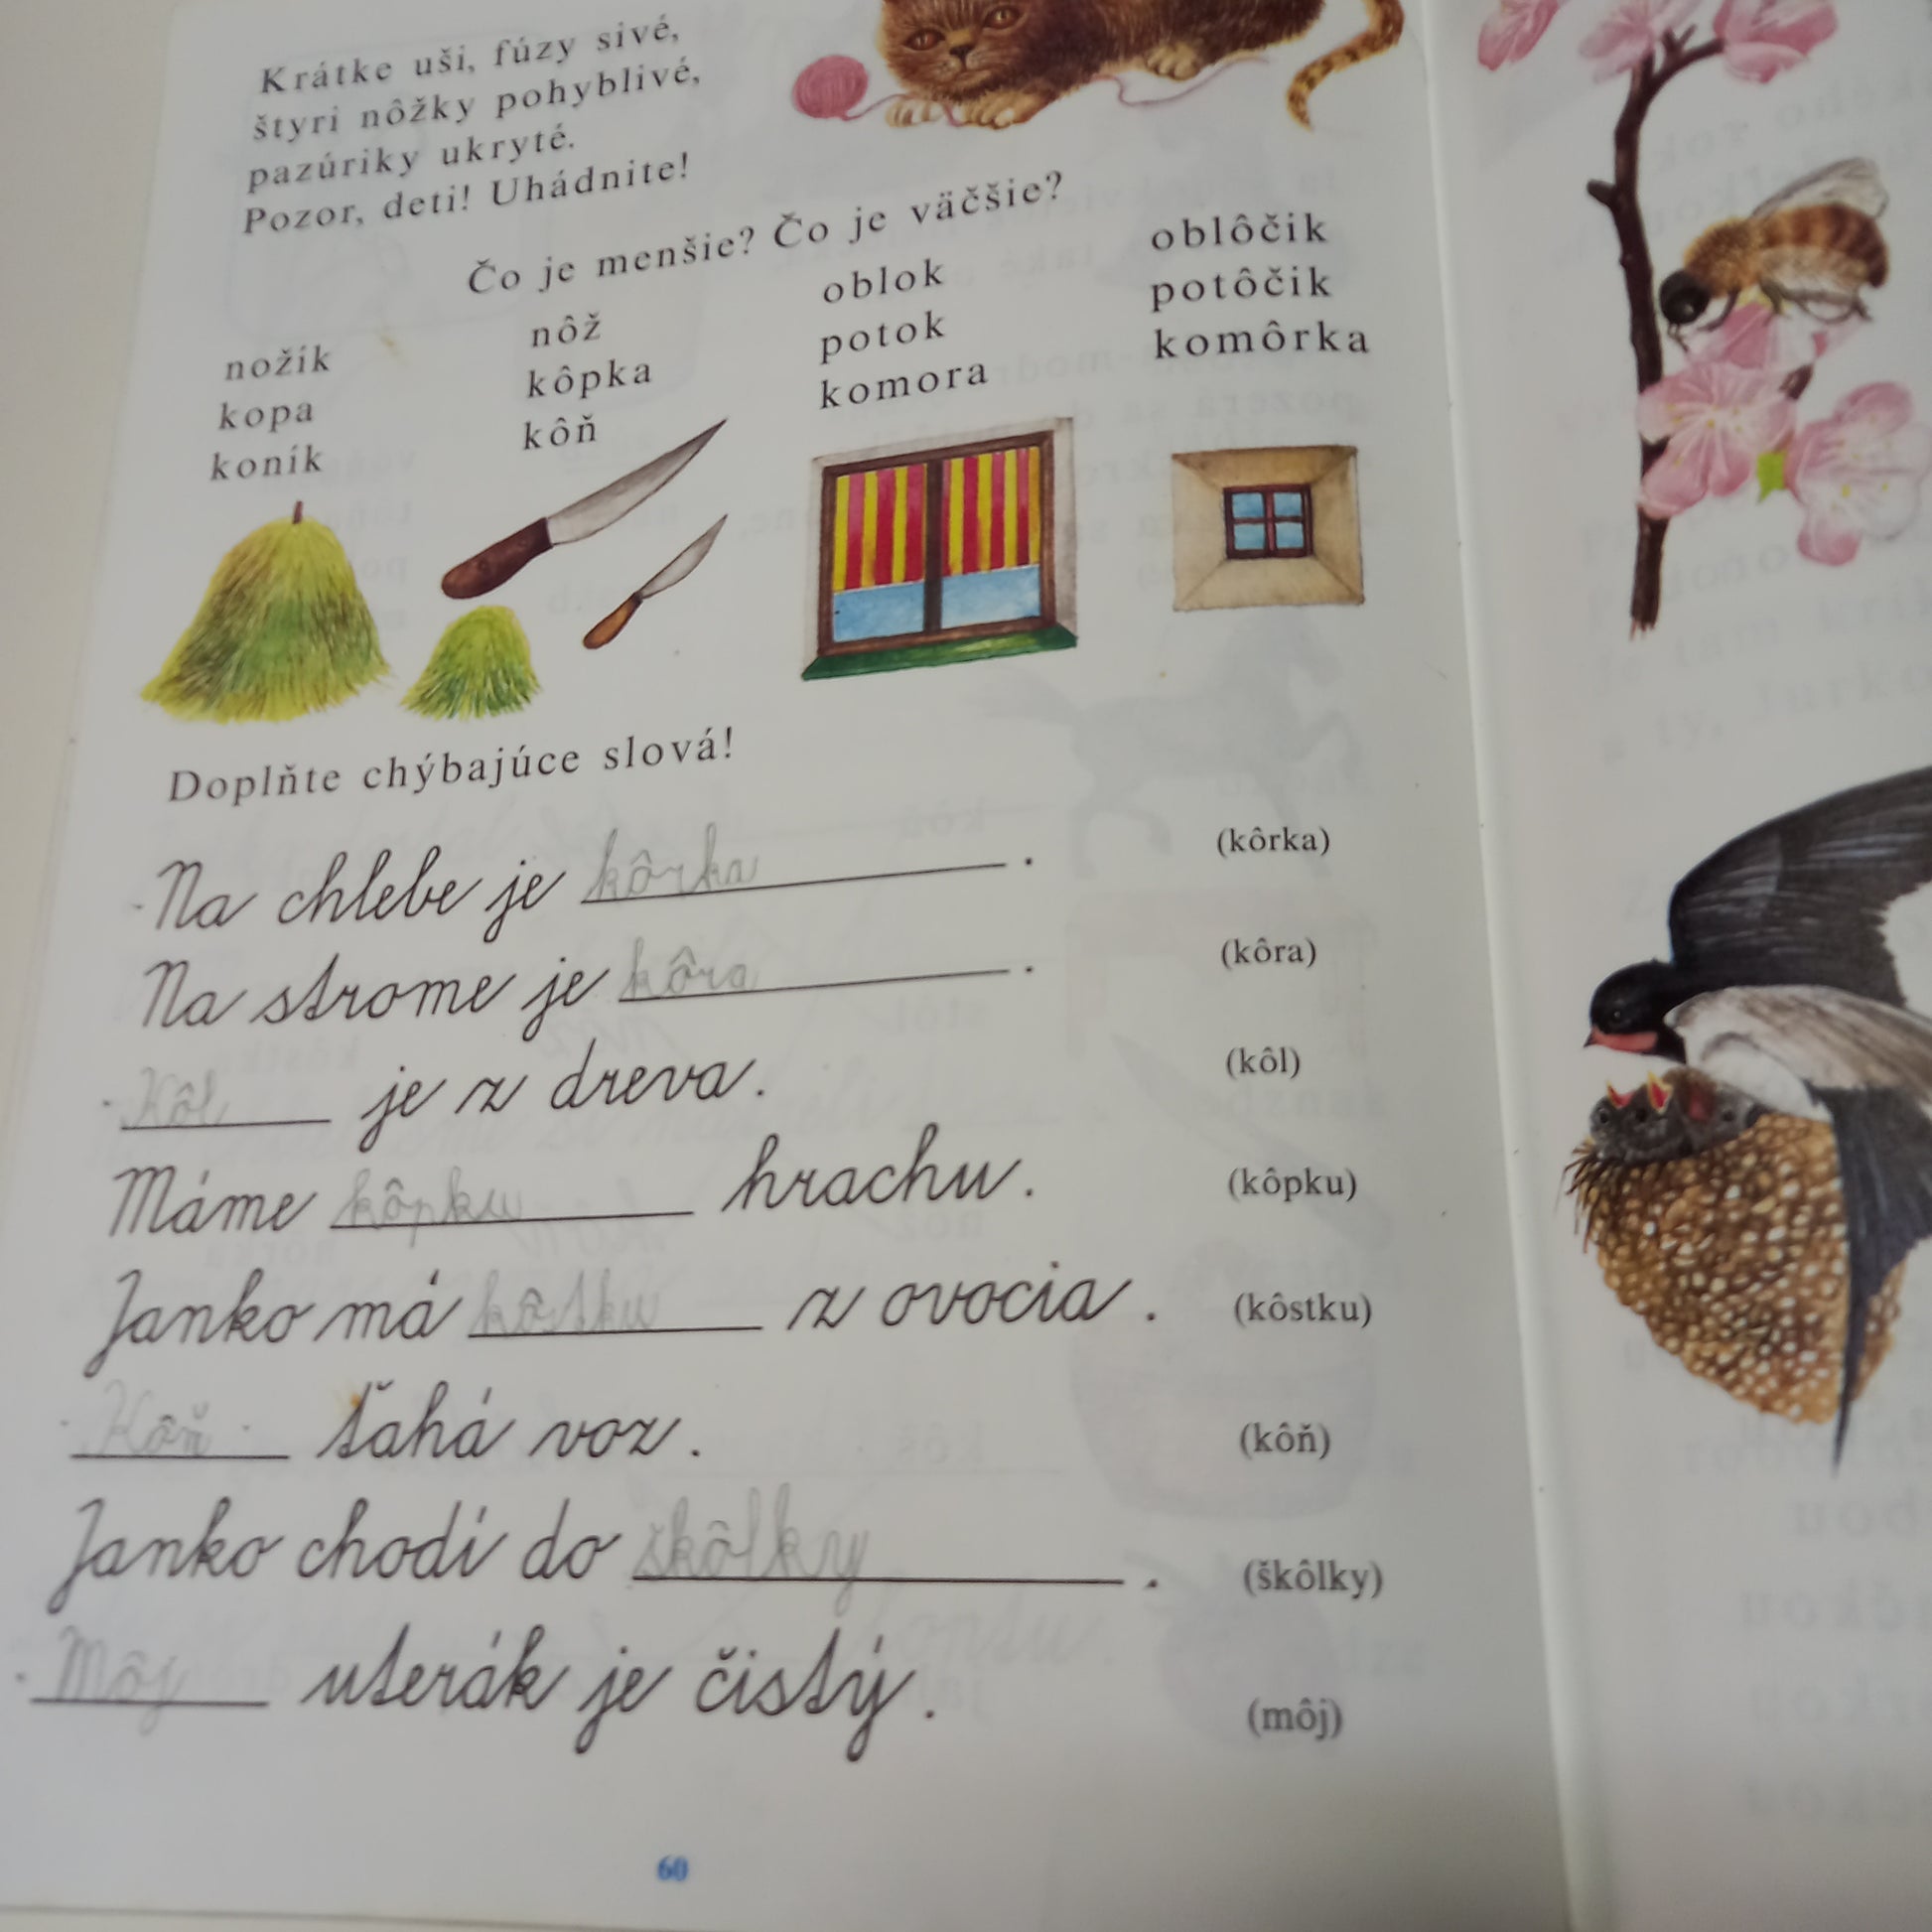 Krátke uši, fúzy sivé,
štyri nôžky pohyblivé,
pazúriky ukryté.
Pozor, deti! Uhádnite!
Čo je menšie? Čo je väčšie?
nožík nôž oblok oblôčik
kopa kôpka potok potôčik
koník kôň komora komôrka
Doplňte chýbajúce slová!
Na chlebe je kôrka. (kôrka)
Na strome je kôra. (kôra)
Kôl je z dreva. (kôl)
Máme kôpku hrachu. (kôpku)
Janko má kôstku z ovocia. (kôstku)
Kôň ťahá voz. (kôň)
Janko chodí do škôlky. (škôlky)
Môj uterák je čistý. (môj)
60